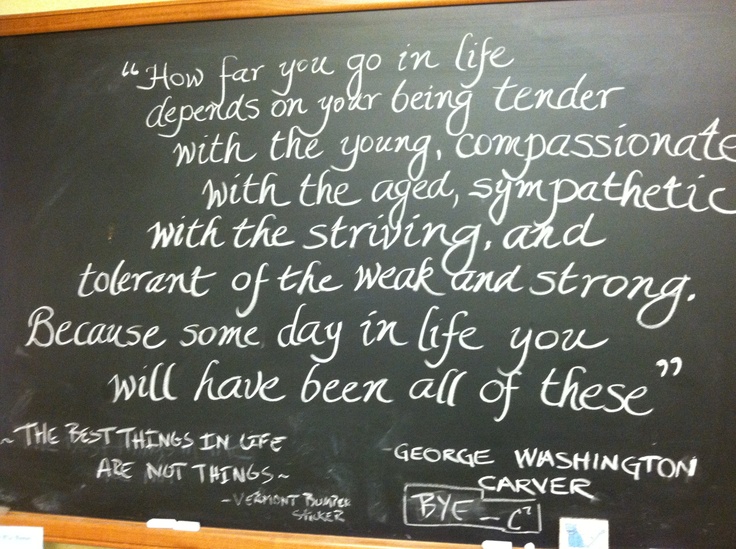 “How far you go in life
depends on your being tender
with the young, compassionate
with the aged, sympathetic
with the striving, and
tolerant of the weak and strong.
Because some day in life you
will have been all of these”
~ THE BEST THINGS IN LIFE
ARE NOT THINGS ~
- VERMONT BUMPER
STICKER
- GEORGE WASHINGTON
CARVER
BYE - C²